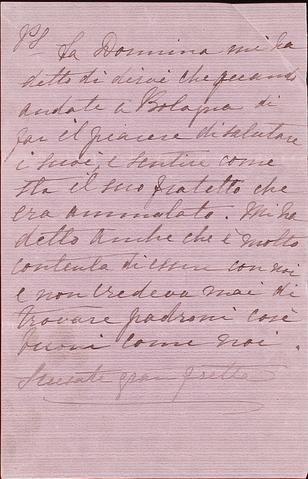 PS La Donnina mi ha
detto di dirvi che quando
andate a Bologna di
far il piacere di salutare
i suoi, e sentire come
sta il suo fratello che
era ammalato. Mi ha
detto anche che è molto
contenta di esser con noi
e non credeva mai di
trovare padroni così
buoni come noi.
Scusate gran fretta